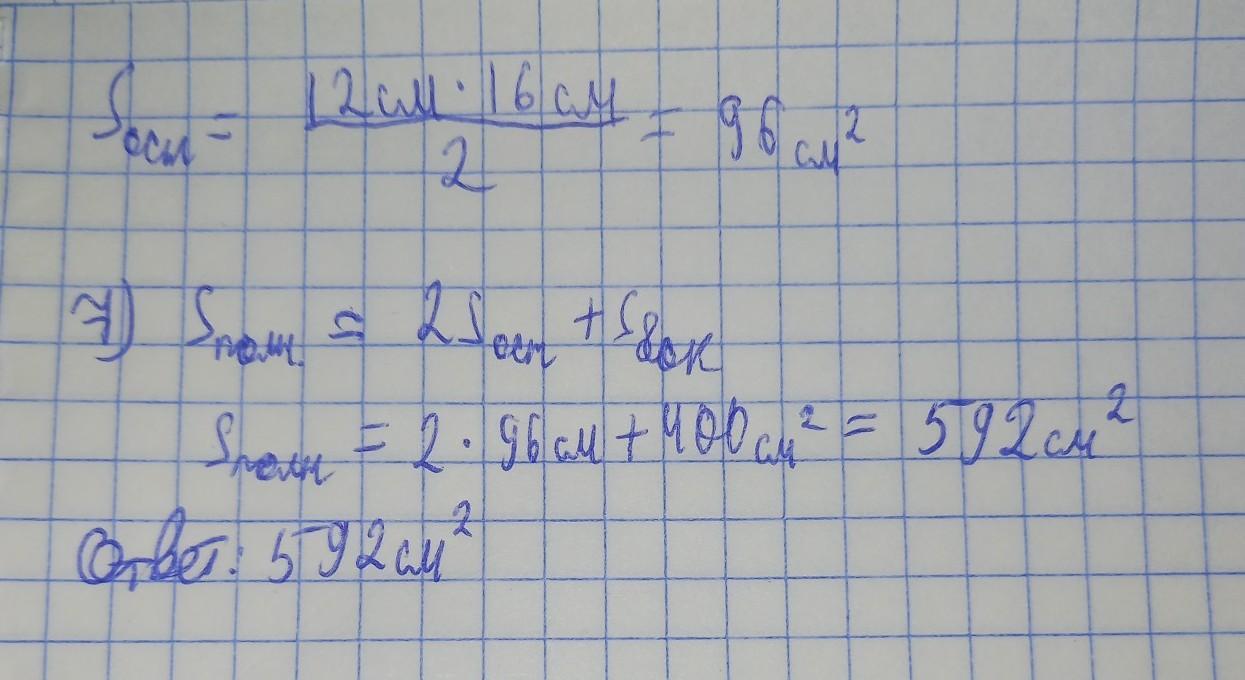 Sосн = 12см · 16см / 2 = 96 см²
7) Sполн. = 2Sосн + Sбок
Sполн = 2 · 96см + 400см² = 592см²
Ответ: 592см²